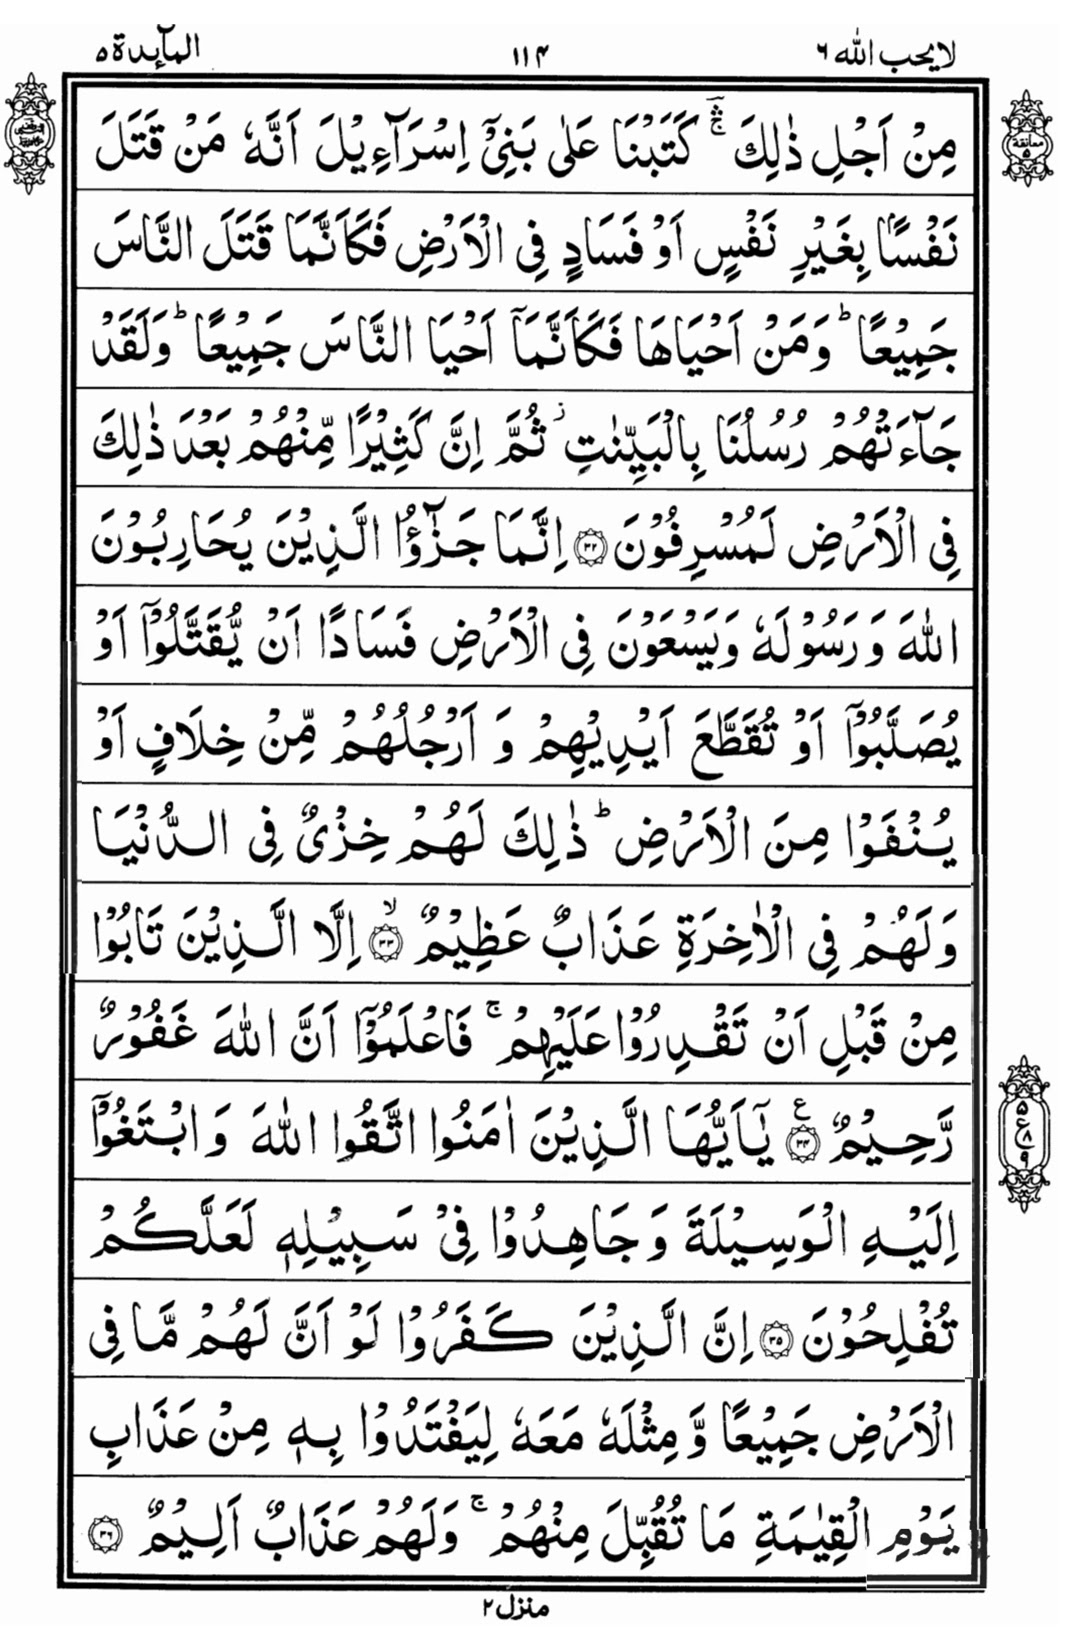 لا یحب الله ٦
١١٤
المآئدة ٥
مِنْ اَجْلِ ذٰلِكَ ۛۚ كَتَبْنَا عَلٰى بَنِیْۤ اِسْرَآءِیْلَ اَنَّهٗ مَنْ قَتَلَ
نَفْسًۢا بِغَیْرِ نَفْسٍ اَوْ فَسَادٍ فِی الْاَرْضِ فَكَاَنَّمَا قَتَلَ النَّاسَ
جَمِیْعًا ؕ وَمَنْ اَحْیَاهَا فَكَاَنَّمَاۤ اَحْیَا النَّاسَ جَمِیْعًا ؕ وَلَقَدْ
جَآءَتْهُمْ رُسُلُنَا بِالْبَیِّنٰتِ ؗ ثُمَّ اِنَّ كَثِیْرًا مِّنْهُمْ بَعْدَ ذٰلِكَ
فِی الْاَرْضِ لَمُسْرِفُوْنَ ۝٣٢ اِنَّمَا جَزٰٓؤُا الَّذِیْنَ یُحَارِبُوْنَ
اللّٰهَ وَ رَسُوْلَهٗ وَیَسْعَوْنَ فِی الْاَرْضِ فَسَادًا اَنْ یُّقَتَّلُوْۤا اَوْ
یُصَلَّبُوْۤا اَوْ تُقَطَّعَ اَیْدِیْهِمْ وَ اَرْجُلُهُمْ مِّنْ خِلَافٍ اَوْ
یُنْفَوْا مِنَ الْاَرْضِ ؕ ذٰلِكَ لَهُمْ خِزْیٌ فِی الدُّنْیَا
وَلَهُمْ فِی الْاٰخِرَةِ عَذَابٌ عَظِیْمٌ ۝٣٣ۙ اِلَّا الَّذِیْنَ تَابُوْا
مِنْ قَبْلِ اَنْ تَقْدِرُوْا عَلَیْهِمْ ۚ فَاعْلَمُوْۤا اَنَّ اللّٰهَ غَفُوْرٌ
رَّحِیْمٌ ۝٣٤ع یٰۤاَیُّهَا الَّذِیْنَ اٰمَنُوا اتَّقُوا اللّٰهَ وَ ابْتَغُوْۤا
اِلَیْهِ الْوَسِیْلَةَ وَ جَاهِدُوْا فِیْ سَبِیْلِهٖ لَعَلَّكُمْ
تُفْلِحُوْنَ ۝٣٥ اِنَّ الَّذِیْنَ كَفَرُوْا لَوْ اَنَّ لَهُمْ مَّا فِی
الْاَرْضِ جَمِیْعًا وَّ مِثْلَهٗ مَعَهٗ لِیَفْتَدُوْا بِهٖ مِنْ عَذَابِ
یَوْمِ الْقِیٰمَةِ مَا تُقُبِّلَ مِنْهُمْ ۚ وَلَهُمْ عَذَابٌ اَلِیْمٌ ۝٣٦
معانقة ٥
٥
ع ٨
٩
منزل ٢